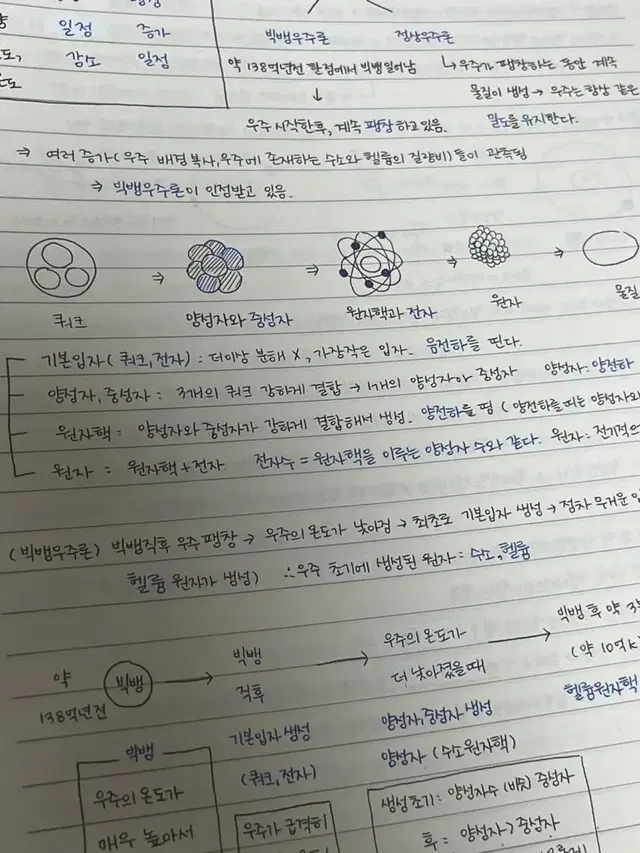 일정 증가
도, 감소 일정
빅뱅우주론 정상우주론
약 138억년전 한점에서 빅뱅일어남 ↳ 우주가 팽창하는 동안 계속
↓ 물질이 생성 → 우주는 항상 같은
우주 시작한후, 계속 팽창하고 있음. 밀도를 유지한다.
⇒ 여러 증거(우주 배경 복사, 우주에 존재하는 수소와 헬륨의 질량비)들이 관측됨
⇒ 빅뱅우주론이 인정받고 있음.
⇒ ⇒ ⇒ ⇒
쿼크 양성자와 중성자 원자핵과 전자 원자 물질
기본입자(쿼크,전자) : 더이상 분해 X, 가장작은 입자. 음전하를 띤다.
양성자, 중성자 : 3개의 쿼크 강하게 결합 → 1개의 양성자아 중성자 양성자: 양전하
원자핵 : 양성자와 중성자가 강하게 결합해서 생성. 양전하를 띰 (양전하를 띠는 양성자와
원자 : 원자핵+전자. 전자수 = 원자핵을 이루는 양성자 수와 같다. 원자: 전기적으
(빅뱅우주론) 빅뱅직후 우주팽창 → 우주의 온도가 낮아짐 → 최초로 기본입자 생성 → 점차 무거운
헬륨 원자가 생성) ∴우주 초기에 생성된 원자: 수소, 헬륨
약 138억년전
빅뱅 →
빅뱅 직후 →
우주의 온도가 더 낮아졌을때 →
빅뱅 후 약 3
(약 10억K
기본입자 생성
(쿼크, 전자)
양성자, 중성자 생성
양성자 (수소원자핵)
헬륨원자핵
빅뱅
우주의 온도가
매우 높아서
우주가 급격히
생성초기: 양성자수 (비슷) 중성자
후 : 양성자 > 중성자